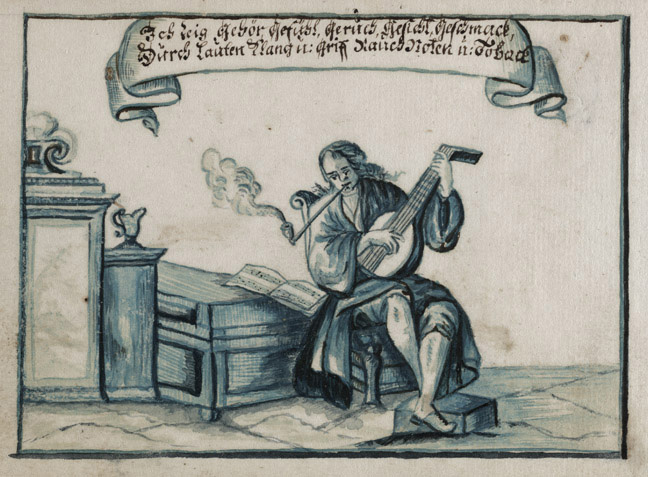 Ich zeig Gehör, Gefühl, Geruch, Gesicht, Geschmack,
Durch Lauten Klang u: Griff Rauch Noten u: Toback